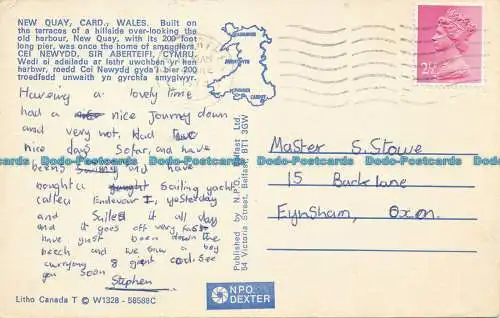 NEW QUAY, CARD., WALES. Built on
the terraces of a hillside over-looking the
old harbour, New Quay, with its 200 foot
long pier, was once the home of smugglers.
CEI NEWYDD, SIR ABERTEIFI, CYMRU.
Wedi ei adeiladu ar lethr uwchben yr hen
herbwr, roedd Cei Newydd gyda'i bier 200
troedfedd unwaith yn gyrchfa smyglwyr.
Having a lovely time
had a nice Journey down
and very hot. Had two
nice days Sofar, and have
been and have
bought a Sailing yacht
called Endeavour I, yesterday
and Sailed it all day
and it goes off very, fast
have just been down the
beach and we saw a boy
carrying 8 giant cod. See
you Soon Stephen
Litho Canada T © W1328 - 58588C
Published by N.P.O. Belfast Ltd.
54 Victoria Street, Belfast, BT1 3GW
NPO
DEXTER
2½P
Master S. Stowe
15 Back lane
Eynsham, Oxon.
Dodo-Postcards Dodo-Postcards Dodo-Postcards Dodo-Postcards